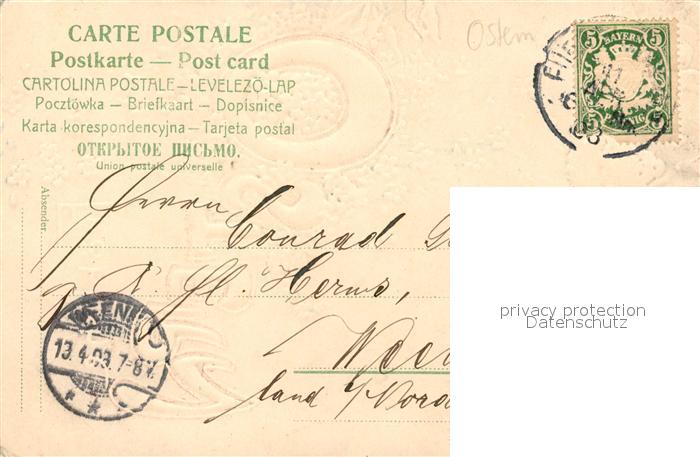 CARTE POSTALE
Postkarte — Post card
CARTOLINA POSTALE – LEVELEZŐ-LAP
Pocztówka – Briefkaart – Dopisnice
Karta korespondencyjna – Tarjeta postal
ОТКРЫТОЕ ПИСЬМО.
Union postale universelle
Absender.
Ostern
5 BAYERN 5
5 5
03
Herrn
Conrad
Herms,
13.4.03.7-8V.
land
privacy protection
Datenschutz